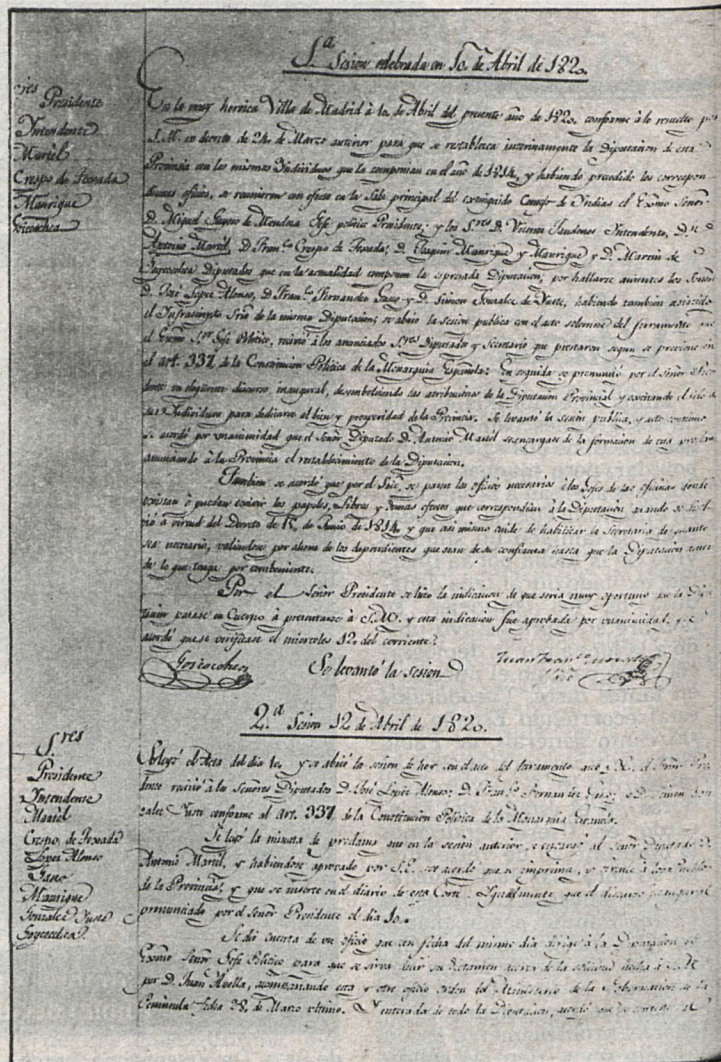 1.ª Sesion celebrada en 10 de Abril de 1820.
Sres
Presidente
Intendente
Martel
Crespo de Texada
Manrique
Goicoechea
En la muy heroica Villa de Madrid à 10 de Abril del presente año de 1820, conforme à lo resuelto por
S.M. en decreto de 24 de Marzo anterior para que se restablezca interinamente la Diputacion de esta
Provincia con los mismos Individuos que la componian en el año de 1814, y habiendo precedido los correspon-
dientes oficios, se reunieron con efecto en la Sala principal del extinguido Consejo de Indias el Exmo Señor
D. Miguel de Mendoza Gefe politico Presidente; y los S.res D. Vicente Intendente, D.n
Antonio Martel, D. Fran.co Crespo de Texada; D. Joaquin Manrique y Manrique y D. Martin de
Goycoechea Diputados que en la actualidad componen la espresada Diputacion; por hallarse ausentes los Señores
D. José Lopez Alonso, D. Fran.co Fernandez Gasco y D. Simon Gonzalez de Yuste, habiendo tambien asistido
el Infraescrito Srio de la misma Diputacion; se abrió la sesion publica con el acto solemne del juramento que
el Exmo S.or Gefe Politico, recivió à los anunciados S.res Diputados y Secretario que prestaron segun se previene en
el art. 337 de la Constitucion Politica de la Monarquia Española: En seguida se pronunció por el Señor Presi-
dente un eloquente discurso inaugural, desembolviendo las atribuciones de la Diputacion Provincial y excitando el celo de
sus Individuos para dedicarse al bien y prosperidad de la Provincia. Se levantó la sesion publica, y acto continuo
se acordó por unanimidad que el Señor Diputado D. Antonio Martel se encargase de la formacion de una proclama
anunciando à la Provincia el restablecimiento de la Diputacion.
Tambien se acordó que por el Srio, se pasen los oficios necesarios à los Gefes de las oficinas donde
existan ò puedan existir los papeles, Libros y demas efectos que correspondian à la Diputacion quando se disol-
vió à virtud del Decreto de 15 de Junio de 1814, y que asi mismo cuide de habilitar la Secretaria de quanto
sea necesario, valiendose por ahora de los dependientes que sean de su confianza hasta que la Diputacion
de lo que tenga por combeniente.
Por el Señor Presidente se hizo la indicacion de que seria muy oportuno que la Dipu-
tacion pasase en Cuerpo à presentarse à S.M. y esta indicacion fue aprobada por unanimidad, y se
acordó que se verificase el miercoles 12 del corriente.
Goicoechea
Se levantó la sesion
Juan Fran.co
Srio
2.ª Sesion 12 de Abril de 1820.
S.res
Presidente
Intendente
Martel
Crespo de Texada
Lopez Alonso
Gasco
Manrique
Gonzalez Yuste
Goycoechea
Se leyó el Acta del dia 10 y se abrió la sesion de hoy con el acto del juramento que el Señor Presi-
dente recivió à los Señores Diputados D. José Lopez Alonso; D. Fran.co Fernandez Gasco, y D. Simon Gon-
zalez Yuste conforme al Art. 337 de la Constitucion Politica de la Monarquia Española.
Se leyó la minuta de proclama que en la sesion anterior, se encargó al Señor Diputado D.
Antonio Martel, y habiendose aprovado por S.E. se acordó que se imprima, y circule à los Pueblos
de la Provincia, y que se inserte en el diario de esta Corte. Igualmente que el discurso inaugural
pronunciado por el Señor Presidente el dia 10.
Se dió cuenta de un oficio que con fecha del mismo dia dirige à la Diputacion el
Exmo Señor Gefe Politico para que se sirva dar su dictamen acerca de la solicitud hecha à S.M.
por D. Juan, acompañando esta y otro oficio orden del Ministerio de la Gobernacion de la
Peninsula fecha 28 de Marzo ultimo. Y enterada de todo la Diputacion, acordó que se conteste al